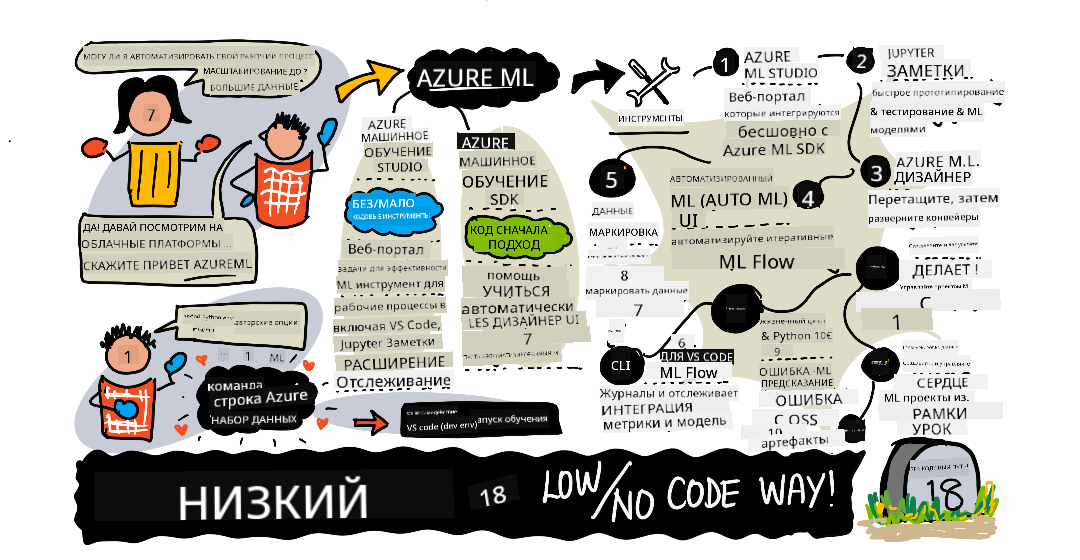 МОГУ ЛИ Я АВТОМАТИЗИРОВАТЬ СВОЙ РАБОЧИЙ ПРОЦЕСС
МАСШТАБИРОВАНИЕ ДО ?
БОЛЬШИЕ ДАННЫЕ
7
ДА! ДАВАЙ ПОСМОТРИМ НА
ОБЛАЧНЫЕ ПЛАТФОРМЫ ...
СКАЖИТЕ ПРИВЕТ AZUREML
авторские опции
1
1 ML
команда
строка Azure
НАБОР ДАННЫХ
VS code (dev env)
запуск обучения
AZURE ML
AZURE
МАШИННОЕ
ОБУЧЕНИЕ
STUDIO
БЕЗ/МАЛО
КОДОВЫЕ ИНСТРУМЕНТЫ
Веб-портал
задачи для эффективности
ML инструмент для
рабочие процессы в
включая VS Code,
Jupyter Заметки
РАСШИРЕНИЕ
Отслеживание
AZURE
МАШИННОЕ
ОБУЧЕНИЕ
SDK
КОД СНАЧАЛА
ПОДХОД
помощь
УЧИТЬСЯ
автоматически
LES ДИЗАЙНЕР UI
7
ИНСТРУМЕНТЫ
1
AZURE
ML STUDIO
Веб-портал
которые интегрируются
бесшовно с
Azure ML SDK
2
JUPYTER
ЗАМЕТКИ
быстрое прототипирование
& тестирование & ML
моделями
3
AZURE M.L.
ДИЗАЙНЕР
Перетащите, затем
разверните конвейеры
АВТОМАТИЗИРОВАННЫЙ
ML (AUTO ML)
4
UI
автоматизируйте итеративные
ML Flow
5
ДАННЫЕ
МАРКИРОВКА
8
маркировать данные
7
6
CLI
ДЛЯ VS CODE
ML Flow
Журналы и отслеживает
ИНТЕГРАЦИЯ
метрики и модель
& Python 10€
9
ОШИБКА -ML
ПРЕДСКАЗАНИЕ
ОШИБКА
C OSS
10
артефакты
ДЕЛАЕТ !
C
1
СЕРДЦЕ
ML проекты из.
РАМКИ
УРОК
НИЗКИЙ
18
LOW/NO CODE WAY!
18